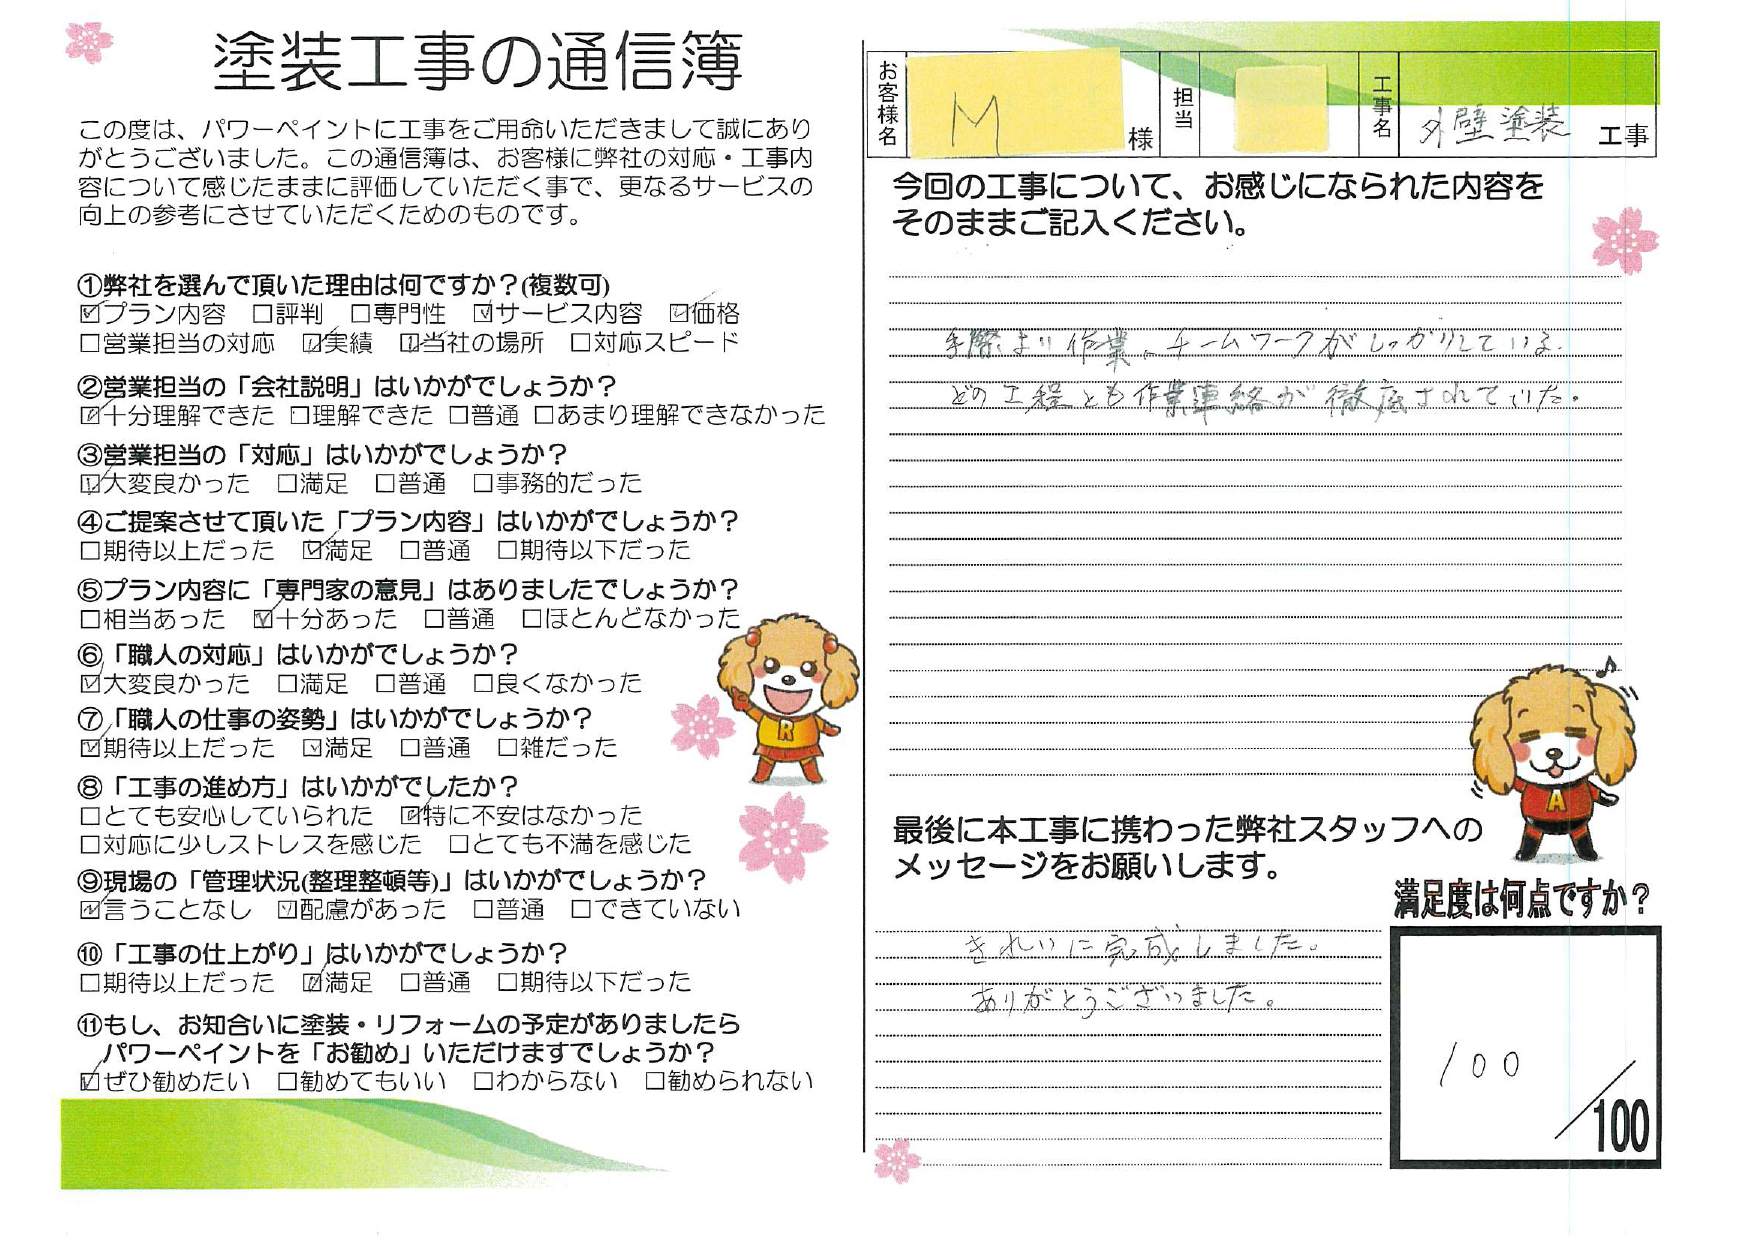 塗装工事の通信簿
この度は、パワーペイントに工事をご用命いただきまして誠にあり
がとうございました。この通信簿は、お客様に弊社の対応・工事内
容について感じたままに評価していただく事で、更なるサービスの
向上の参考にさせていただくためのものです。
①弊社を選んで頂いた理由は何ですか？(複数可)
☑プラン内容 □評判 □専門性 ☑サービス内容 ☑価格
□営業担当の対応 ☑実績 ☑当社の場所 □対応スピード
②営業担当の「会社説明」はいかがでしょうか？
☑十分理解できた □理解できた □普通 □あまり理解できなかった
③営業担当の「対応」はいかがでしょうか？
☑大変良かった □満足 □普通 □事務的だった
④ご提案させて頂いた「プラン内容」はいかがでしょうか？
□期待以上だった ☑満足 □普通 □期待以下だった
⑤プラン内容に「専門家の意見」はありましたでしょうか？
□相当あった ☑十分あった □普通 □ほとんどなかった
⑥「職人の対応」はいかがでしょうか？
☑大変良かった □満足 □普通 □良くなかった
⑦「職人の仕事の姿勢」はいかがでしょうか？
☑期待以上だった ☑満足 □普通 □雑だった
⑧「工事の進め方」はいかがでしたか？
□とても安心していられた ☑特に不安はなかった
□対応に少しストレスを感じた □とても不満を感じた
⑨現場の「管理状況(整理整頓等)」はいかがでしょうか？
☑言うことなし ☑配慮があった □普通 □できていない
⑩「工事の仕上がり」はいかがでしょうか？
□期待以上だった ☑満足 □普通 □期待以下だった
⑪もし、お知合いに塗装・リフォームの予定がありましたら
パワーペイントを「お勧め」いただけますでしょうか？
☑ぜひ勧めたい □勧めてもいい □わからない □勧められない
R
お客様名 M 様 担当 工事名 外壁塗装 工事
今回の工事について、お感じになられた内容を
そのままご記入ください。
手際よい作業、チームワークがしっかりしている.
どの工程とも作業連絡が徹底されていた。
A
最後に本工事に携わった弊社スタッフへの
メッセージをお願いします。
きれいに完成しました。
ありがとうございました。
満足度は何点ですか？
100
/100